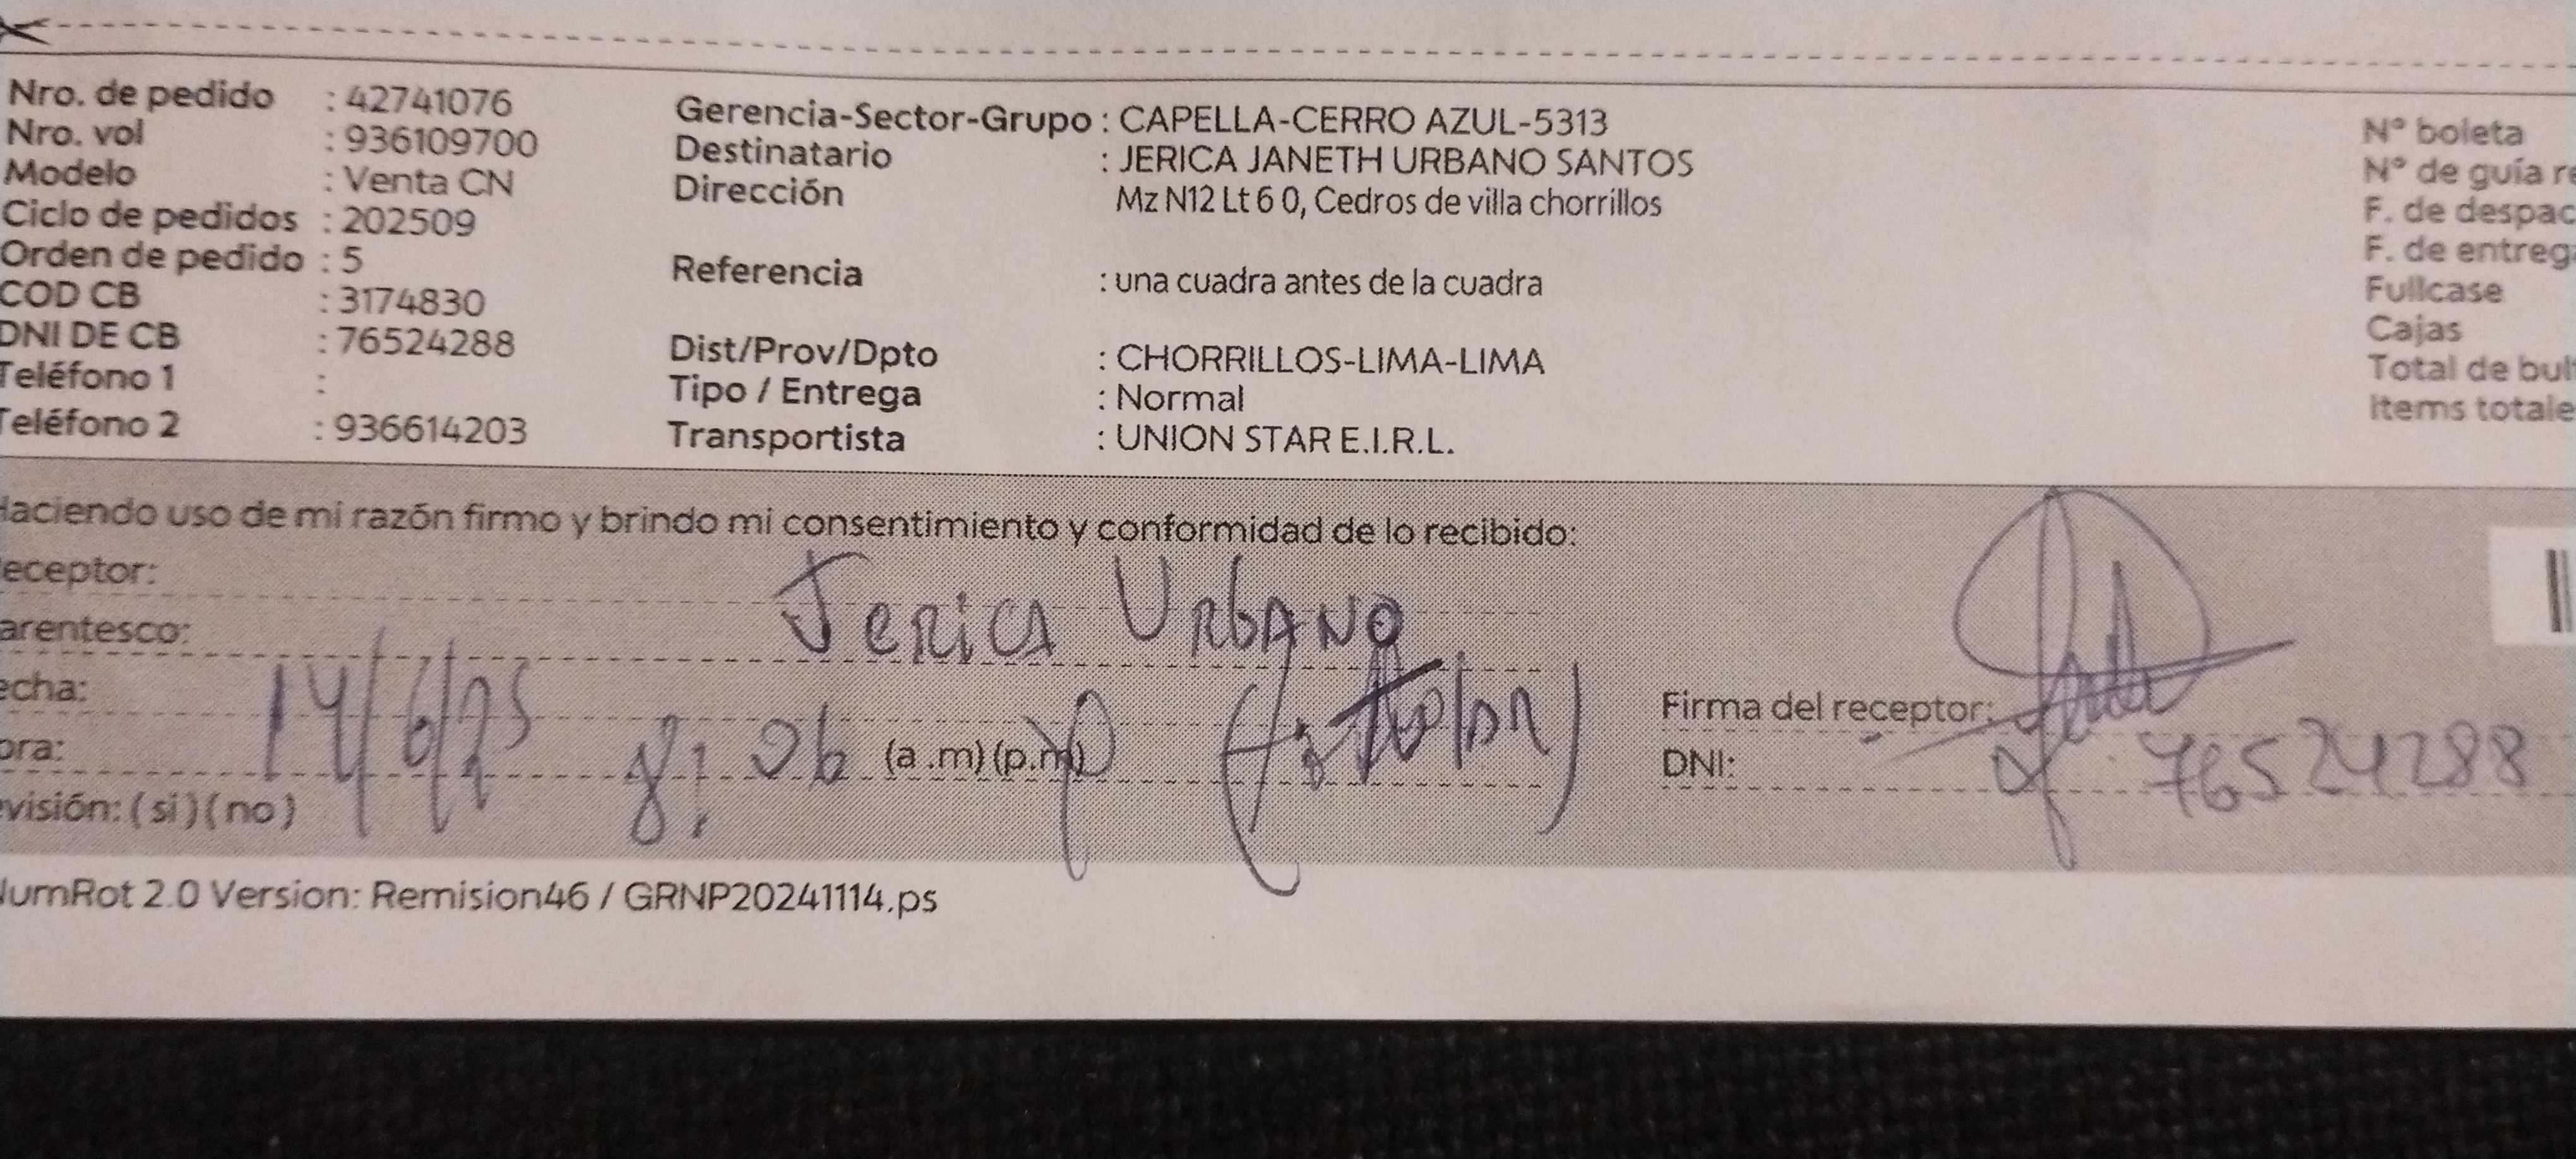 Nro. de pedido : 42741076
Nro. vol : 936109700
Modelo : Venta CN
Ciclo de pedidos : 202509
Orden de pedido : 5
COD CB : 3174830
DNI DE CB : 76524288
Teléfono 1 :
Teléfono 2 : 936614203
Gerencia-Sector-Grupo : CAPELLA-CERRO AZUL-5313
Destinatario : JERICA JANETH URBANO SANTOS
Dirección Mz N12 Lt 6 0, Cedros de villa chorrillos
Referencia : una cuadra antes de la cuadra
Dist/Prov/Dpto : CHORRILLOS-LIMA-LIMA
Tipo / Entrega : Normal
Transportista : UNION STAR E.I.R.L.
N° boleta
N° de guía re
F. de despac
F. de entrega
Fullcase
Cajas
Total de bult
Items totale
Haciendo uso de mi razón firmo y brindo mi consentimiento y conformidad de lo recibido:
eceptor: Jerica Urbano
arentesco:
echa: 14/6/25
ora: 8: 06 (a .m) (p.m)
evisión: ( si ) ( no )
Firma del receptor:
DNI: 76524288
NumRot 2.0 Version: Remision46 / GRNP20241114.ps